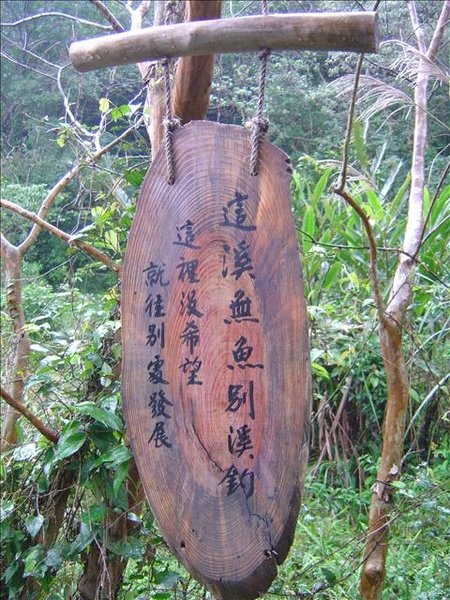 這溪無魚別溪釣
這裡沒希望
就往別處發展